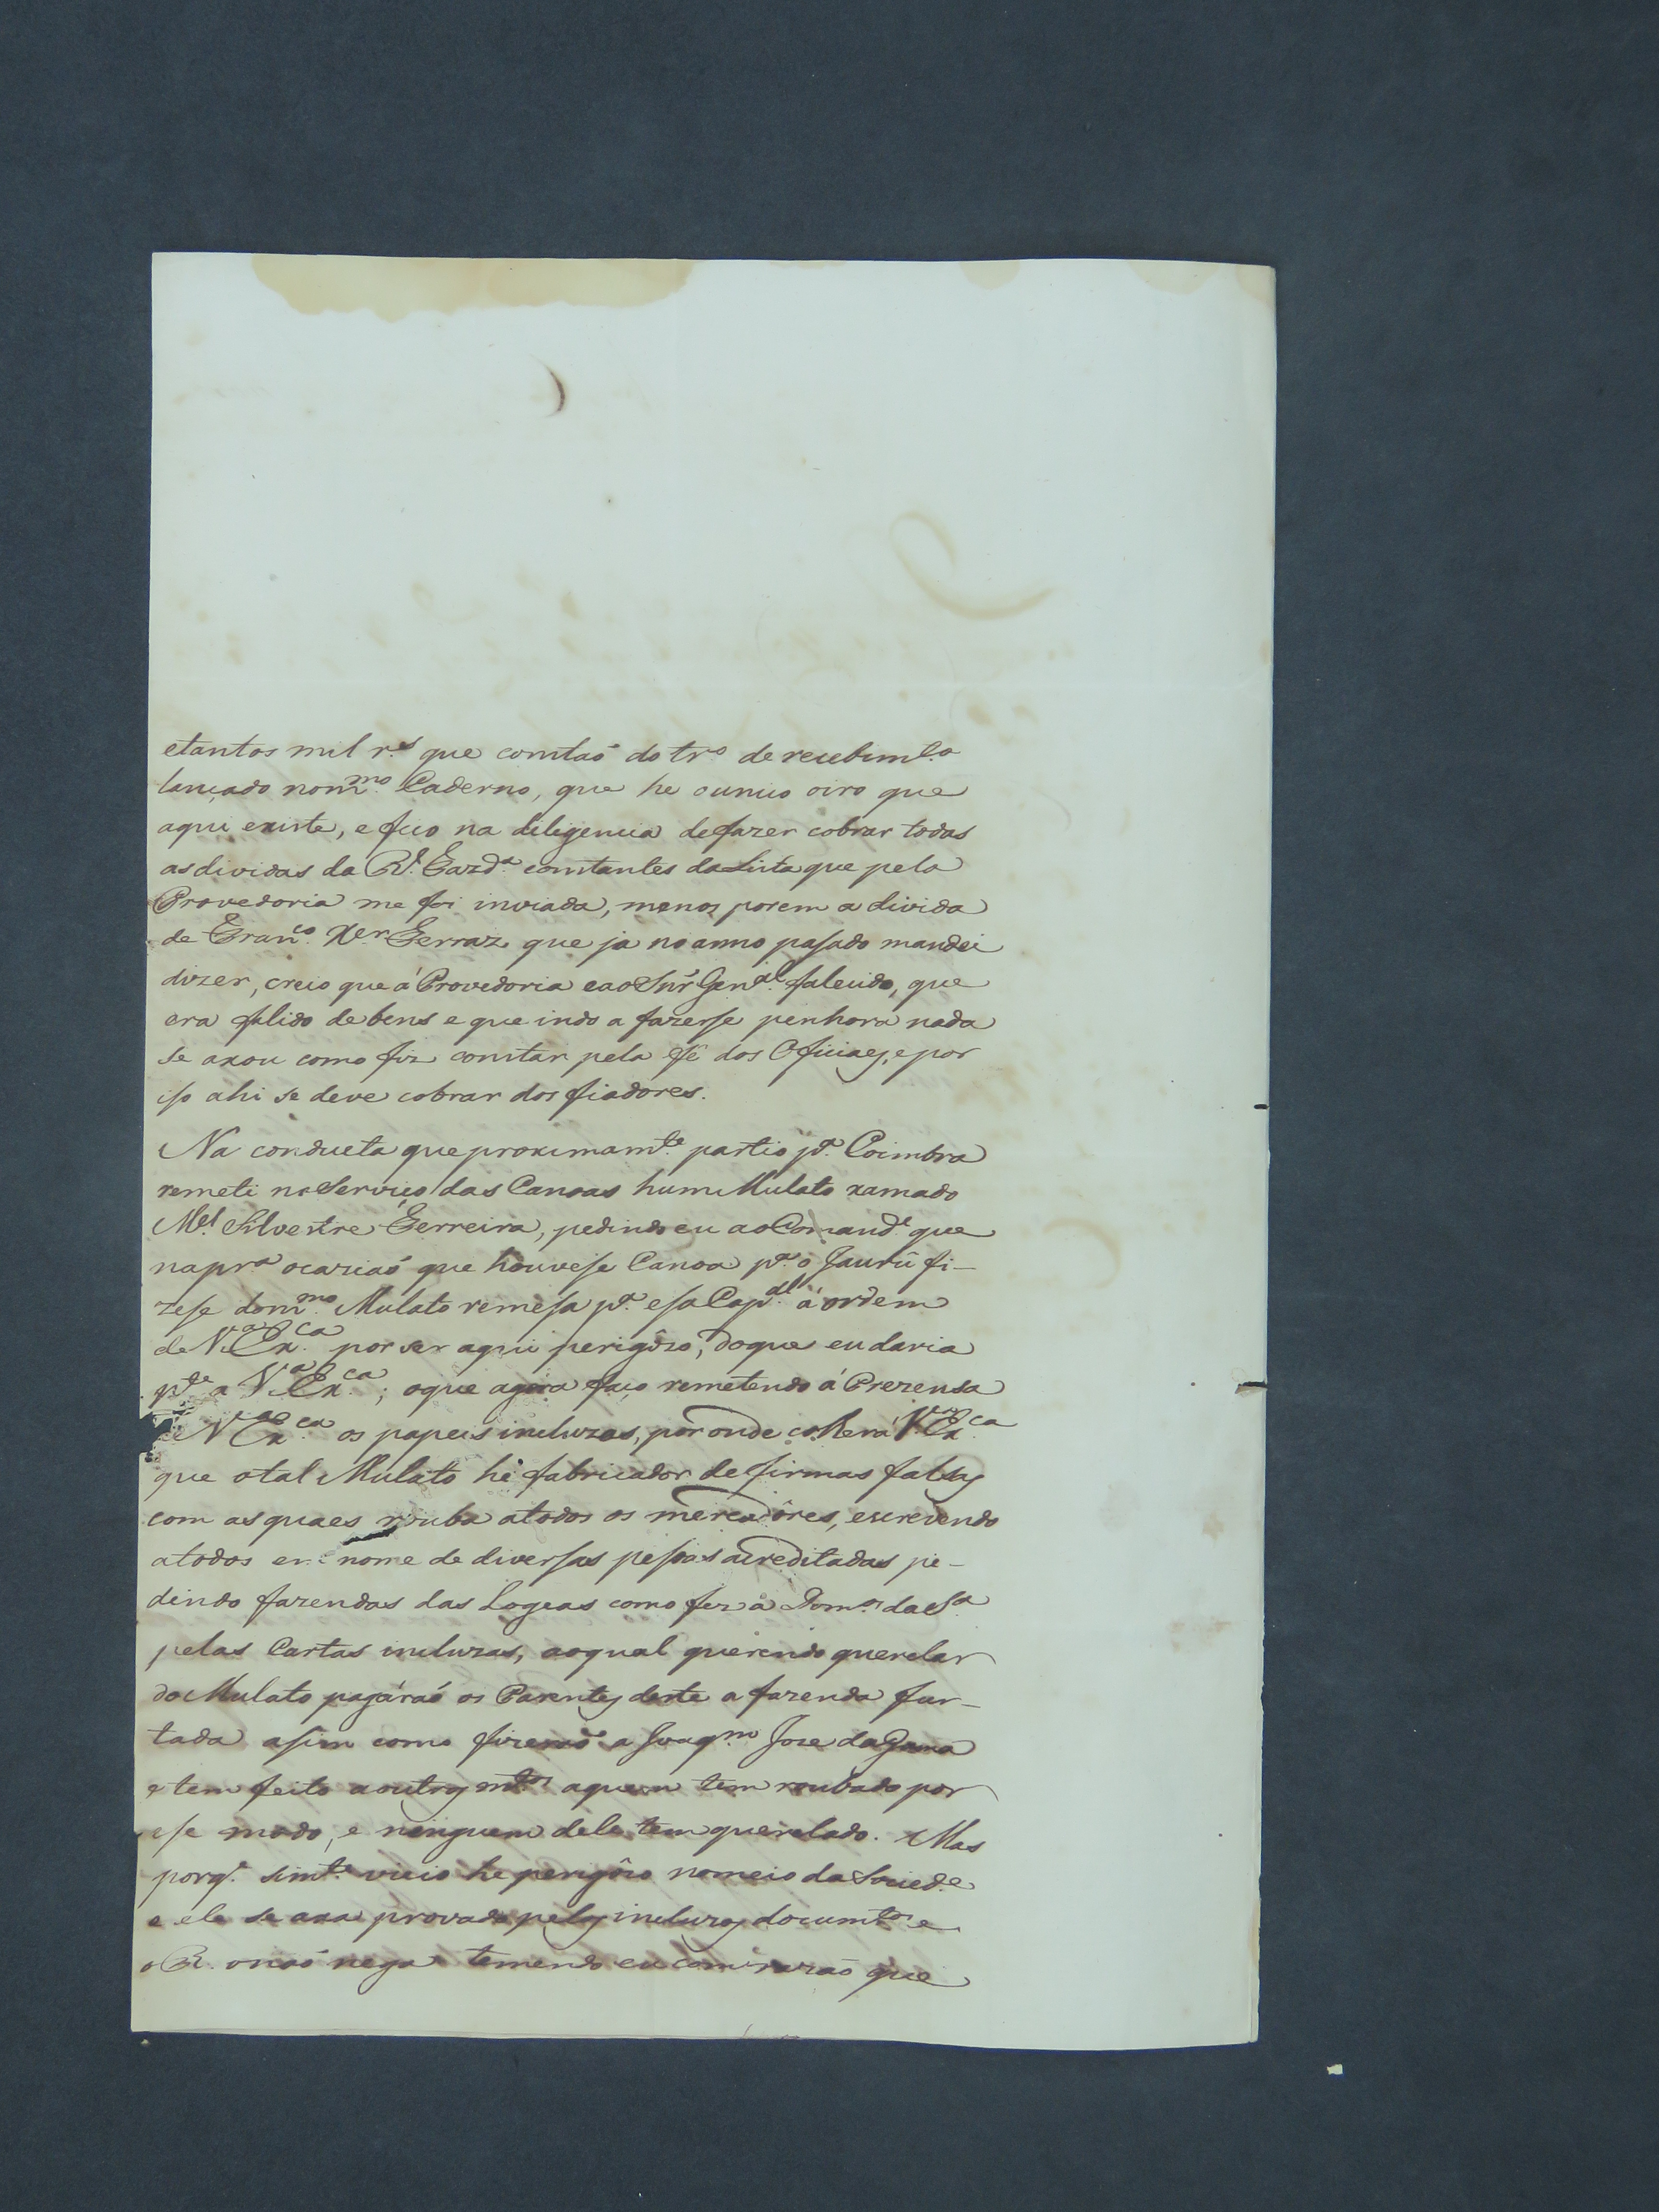 etantos mil r.s que constaõ do tr.o de recebim.to
lançado nom.mo Caderno, que he ounico oiro que
aqui existe, e fico na diligencia defazer cobrar todas
asdividas da R.l Fazd.a constantes daLista que pela
Provedoria me foi inviada, menos porem a divida
de Fran.co X.er Ferraz que ja no anno pasado mandei
dizer, creio que á Provedoria eaoSnr Gen.al falecido, que
era falido debens e que indo a fazerse penhora nada
se axou como fiz constar pela fé dos Oficiaes, e por
iso ahi se deve cobrar dos fiadores.
Na conducta que proximam.te partio p.a Coimbra
remeti noServiço das Canoas hum Mulato xamado
M.el Silvestre Ferreira, pedindo eu aoComand.e que
napr.a ocaziaõ que houvese Canoa p.a o Jaurú fi-
zese dom.mo Mulato remesa p.a esaCap.al á ordem
de V.a Ex.ca por ser aqui perigôzo, doque eu daria
p.te a V.a Ex.ca; oque agora faço remetendo á Prezensa
de V.a Ex.ca os papeis incluzos, por onde colherá V.a Ex.ca
que otal Mulato hé fabricador defirmas falsas
com asquaes rouba atodos os mercadôres, escrevendo
atodos em nome de diversas pesoas acreditadas pe-
dindo fazendas das Logeas como fez à Dom.os daS.a
pelas Cartas incluzas, aoqual querendo querelar
do Mulato pagáraõ os Parentes deste a fazenda fur-
tada asim como fizeraõ a Joaq.m Joze daGama
e tem feito aoutros m.tos aquem tem roubado por
ese modo, e ninguem dele tem querelado. Mas
porq.e sim.te vicio he perigôzo nomeio daSocied.e
e ele se axa provado pelos incluzos docum.tos e
o R. onaõ nega temendo eu com razaõ que